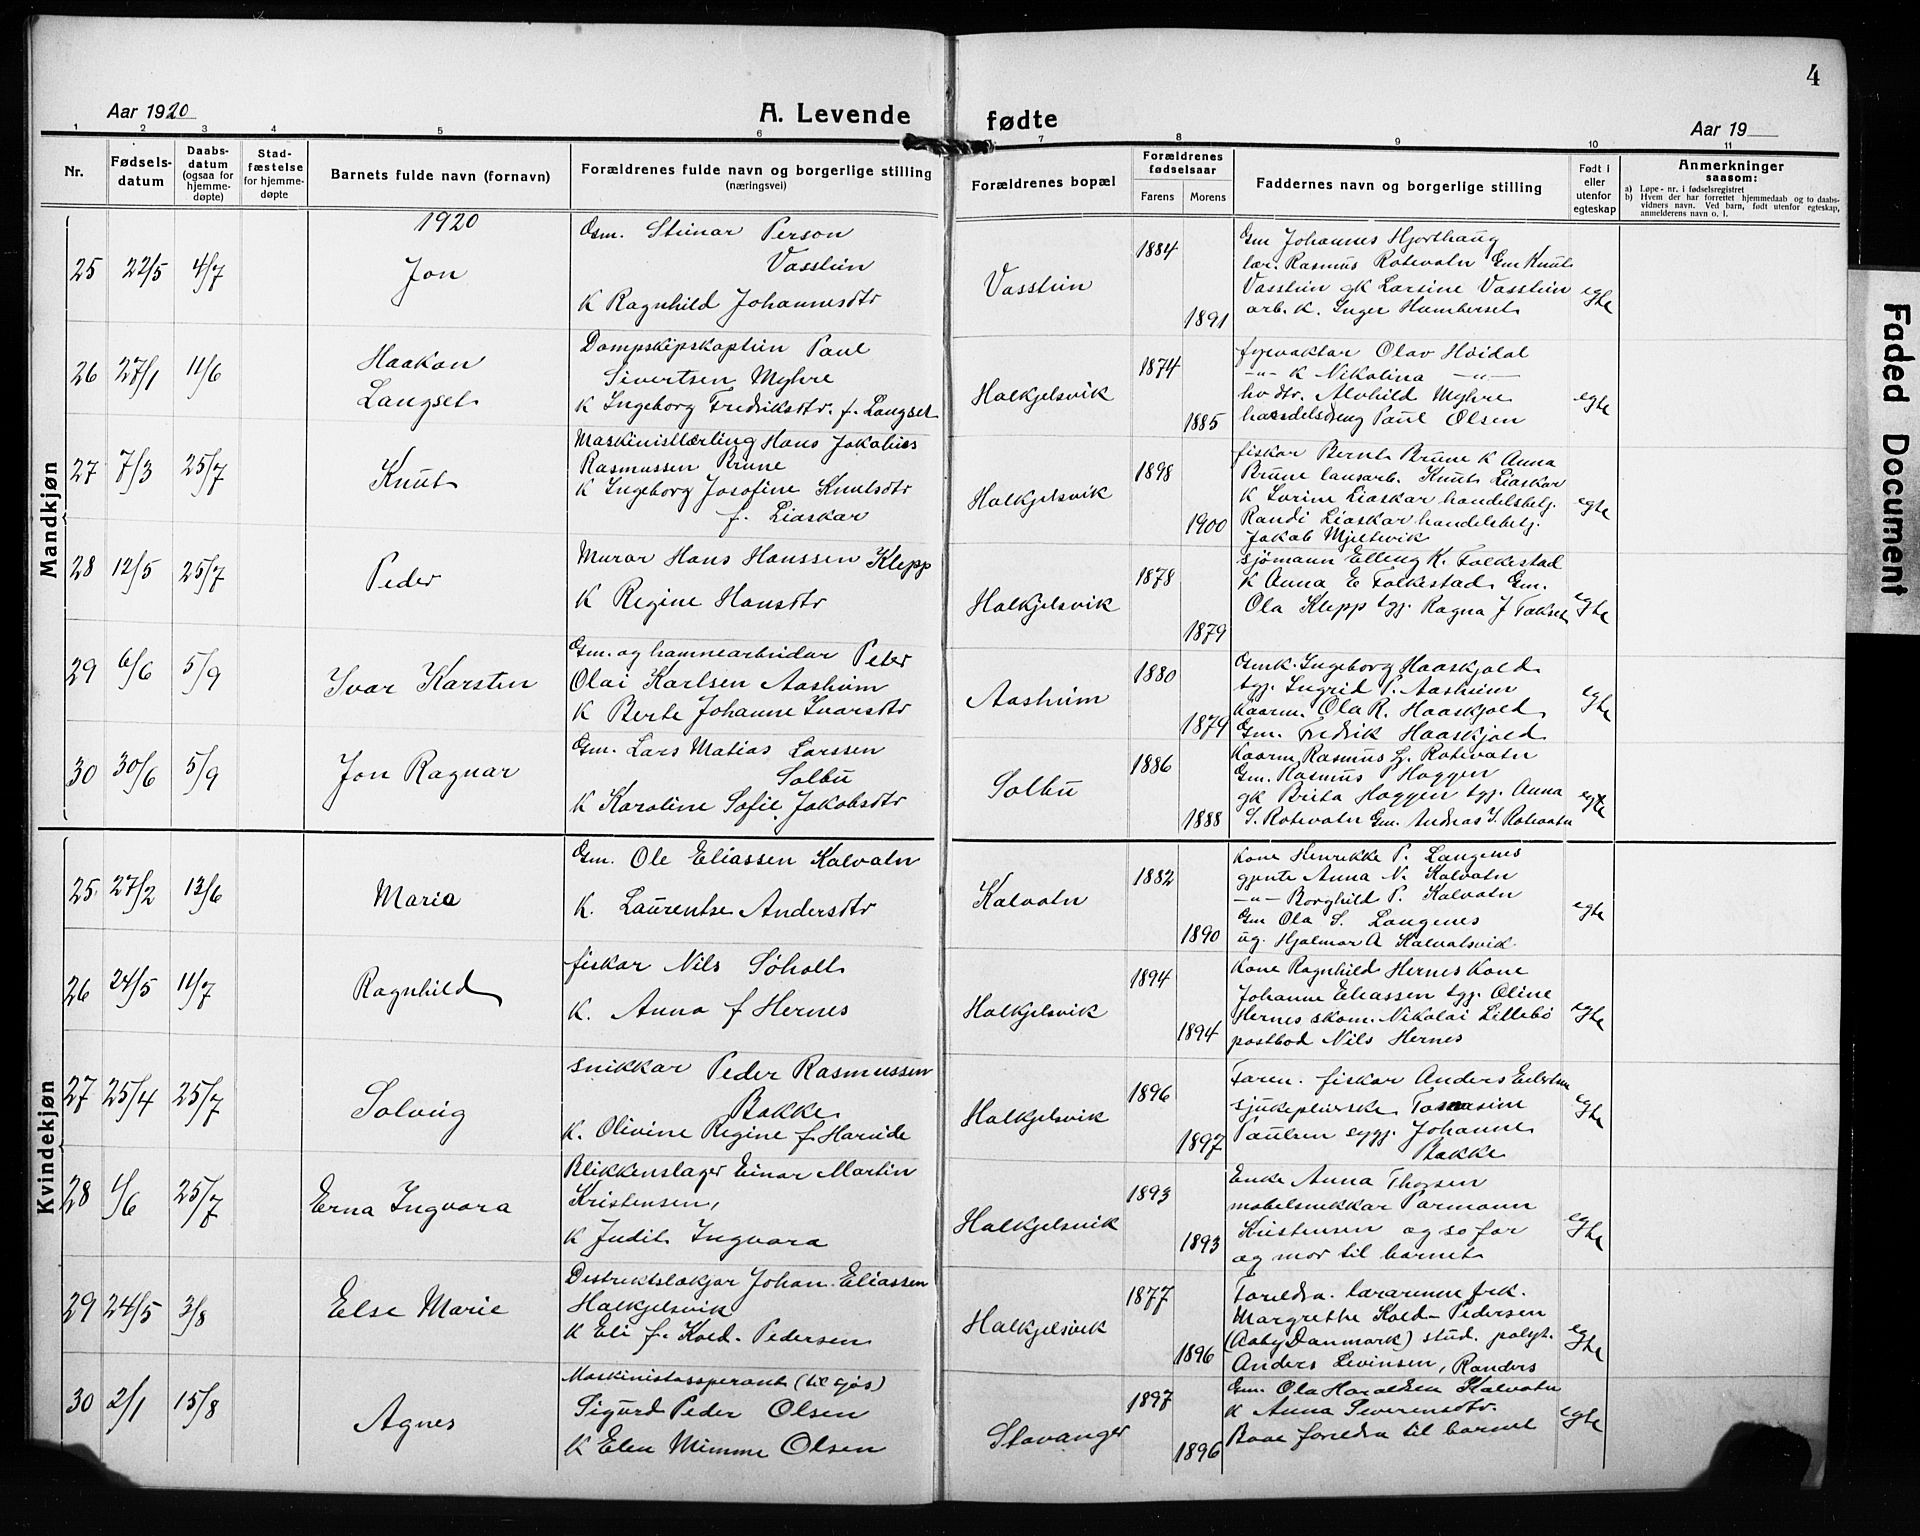 4
Aar 1920
A. Levende fødte
Aar 19
1 2 3 4 5 6 7 8 9 10 11
Nr.
Fødsels-
datum
Daabs-
datum
(ogsaa for
hjemme-
døpte)
Stad-
fæstelse
for hjemme-
døpte
Barnets fulde navn (fornavn)
Forældrenes fulde navn og borgerlige stilling
(næringsvei)
Forældrenes bopæl
Forældrenes
fødselsaar
Farens Morens
Faddernes navn og borgerlige stilling
Født i
eller
utenfor
egteskap
Anmerkninger
saasom:
a) Løpe-nr. i fødselsregistret
b) Hvem der har forrettet hjemmedaab og to daabs-
vidners navn. Ved barn, født utenfor egteskap,
anmelderens navn o. l.
Mandkjøn
1920
25 22/5 4/7 Jon
Gm. Steinar Person
Vasstein
K Ragnhild Johannesdtr
Vasstein
1884
1891
Gm Johannes Hjorthaug
lær. Rasmus Rotevatn Gm Knut
Vasstein gk Larsine Vasstein
arb. K. Inger Humberset
egte
26 27/1 11/6 Haakon
Langset
Dampskipskaptein Paul
Sivertsen Myhre
K Ingeborg Fredriksdtr. f. Langset
Halkjelsvik
1874
1885
fyrvaktar Olav Høidal
-"- K Nikolina -"-
hv dtr. Alvhild Myhre
handelsdreng Paul Olsen
egte
27 7/3 25/7 Knut
Maskinistlærling Hans Jakobius
Rasmussen Brune
K Ingeborg Josofine Knutsdtr
f. Liaskar
Halkjelsvik
1898
1900
fiskar Bernt Brune K Anna
Brune lausarb. Knut Liaskar
K Severine Liaskar handelsbetj.
Randi Liaskar handelsbetj.
Jakob Mjeltevik
egte
28 12/5 25/7 Peder
Murar Hans Hanssen Klepp
K Regine Hansdtr
Halkjelsvik
1878
1879
sjömann Elling K. Folkestad
K Anna E Folkestad Gm.
Ola Klepp tgj. Ragna J Takset
egte
29 6/6 5/9 Ivar Karsten
Gm. og hamnearbeidar Peter
Olai Karlsen Aasheim
K Berte Johanne Ivarsdtr
Aasheim
1880
1879
Gmk. Ingeborg Haaskjold
tgj. Ingrid P. Aasheim
Kaarm. Ola R. Haaskjold
Gm. Fredrik Haaskjold
egte
30 30/6 5/9 Jon Ragnar
Gm. Lars Matias Larssen
Solbu
K Karoline Sofie Jakobsdtr
Solbu
1886
1888
Kaarm Rasmus L. Rotevatn
Gm. Rasmus P Haggen
gk Brita Haggen tgj. Anna
S. Rotevatn Gm. Andreas I. Rotevatn
egte
Kvindekjøn
25 27/2 13/6 Maria
Gm. Ole Eliassen Kalvatn
K. Laurentse Andersdtr
Kalvatn
1882
1890
Kone Henrikke P. Langenes
gjente Anna N. Kalvatn
-"- Borghild P. Kalvatn
Gm Ola S. Langenes
ug. Hjalmar A Kalvatsvik
egte
26 24/5 11/7 Ragnhild
fiskar Nils Søholt
K. Anna f Hernes
Halkjelsvik
1894
1894
Kone Ragnhild Hernes Kone
Johanne Eliassen tgj. Oline
Hernes skom. Nikolai Lillebö
postbod Nils Hernes
egte
27 25/4 25/7 Solveig
snikkar Peder Rasmussen
Bakke
K. Olivine Regine f. Hareide
Halkjelsvik
1896
1897
Faren. fiskar Anders
sjukepleierske
Paulsen sygj. Johanne
Bakke
egte
28 1/6 25/7 Erna Ingvara
Blikkenslager Einar Martin
Kristensen,
K Judit Ingvara
Halkjelsvik
1893
1893
Enke Anna Thorsen
møbelsnikkar Parmann
Kristensen og so far
og mor til barnet
egte
29 24/5 3/8 Else Marie
Distriktslækjar Johan Eliassen
Halkjelsvik
K Eli f. Kold-Pedersen
Halkjelsvik
1877
1896
Foreldra. lærarinne frk.
Margrethe Kold-Pedersen
(Aaby Danmark) stud. polyt.
Anders Levinsen, Randers
egte
30 2/1 15/8 Agnes
Maskinistassperant (til sjøs)
Sigurd Peder Olsen
K Elen Mimme Olsen
Stavanger
1897
1896
Gm. Ola Haraldsen Kalvatn
K Anna Severensdtr.
Baae foreldra til barnet
egte
Faded Document